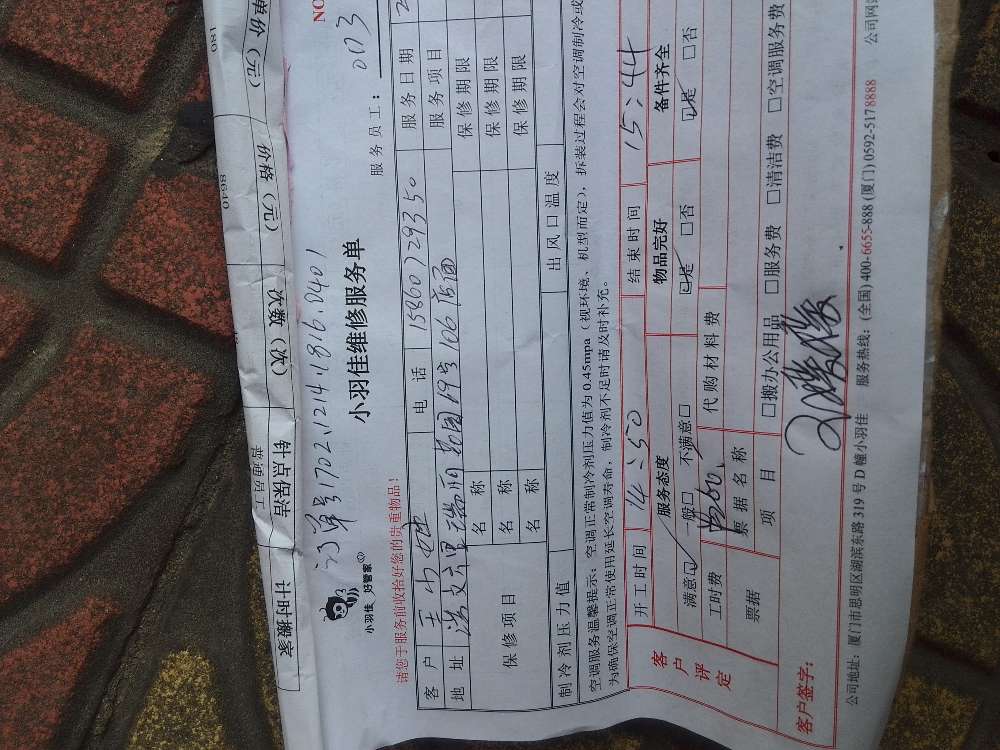 单价（元） 价格（元） 次数（次） 针总保洁 计时搬家
180 8640 普通员工
NO
订单号1702121418160401
小羽佳 好管家
小羽佳维修服务单
服务员工： 003
请您于服务前收拾好您的贵重物品！
客户 王小姐 电话 15860729350 服务日期 2
地址 服务项目
保修项目 名称 保修期限
名称 保修期限
名称 保修期限
制冷剂压力值 出风口温度
空调服务温馨提示：空调正常制冷剂压力值为0.45mpa（视环境、机型而定），拆装过程会对空调制冷或
为确保空调正常使用延长空调寿命，制冷剂不足时请及时补充。
客户评定
开工时间 14:50 结束时间 15:44
服务态度 物品完好 备件齐全
满意☑ 一般□ 不满意□ ☑是 □否 ☑是 □否
工时费 代购材料费
票据 票据名称
项目 □搬办公用品 □服务费 □清洁费 □空调服务费
客户签字：
公司地址：厦门市思明区湖滨东路319号D幢小羽佳 服务热线：(全国) 400-6655-888 (厦门) 0592-5178888 公司网